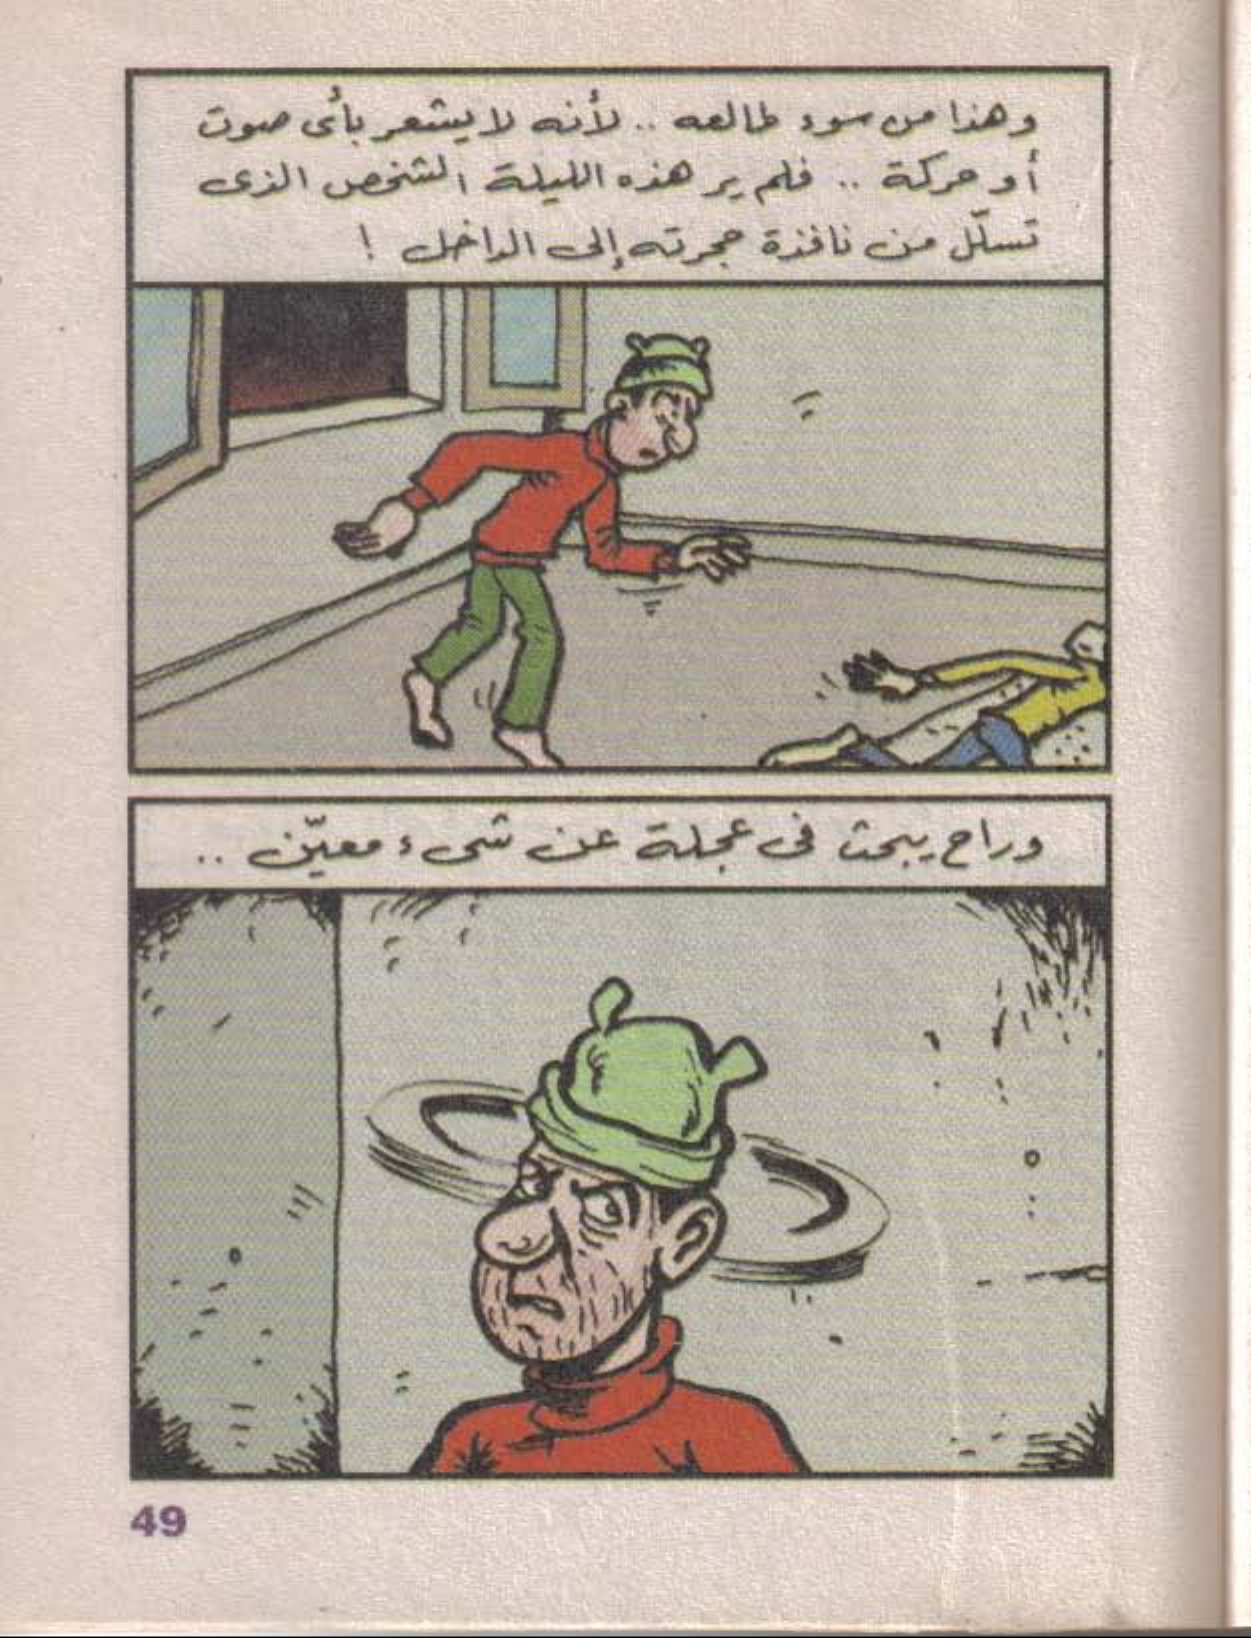 وهذا من سوء طالعه .. لأنه لا يشعر بأى صوت
أو حركة .. فلم ير هذه الليلة الشخص الذى
تسلّل من نافذة حجرته إلى الداخل !
وراح يبحث فى عجلة عن شىء معيّن ..
49